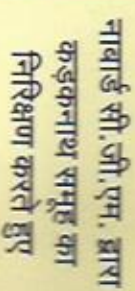 नवार्ड सी.जी.एम. द्वारा
कड़कनाथ समूह का
निरिक्षण करते हुए